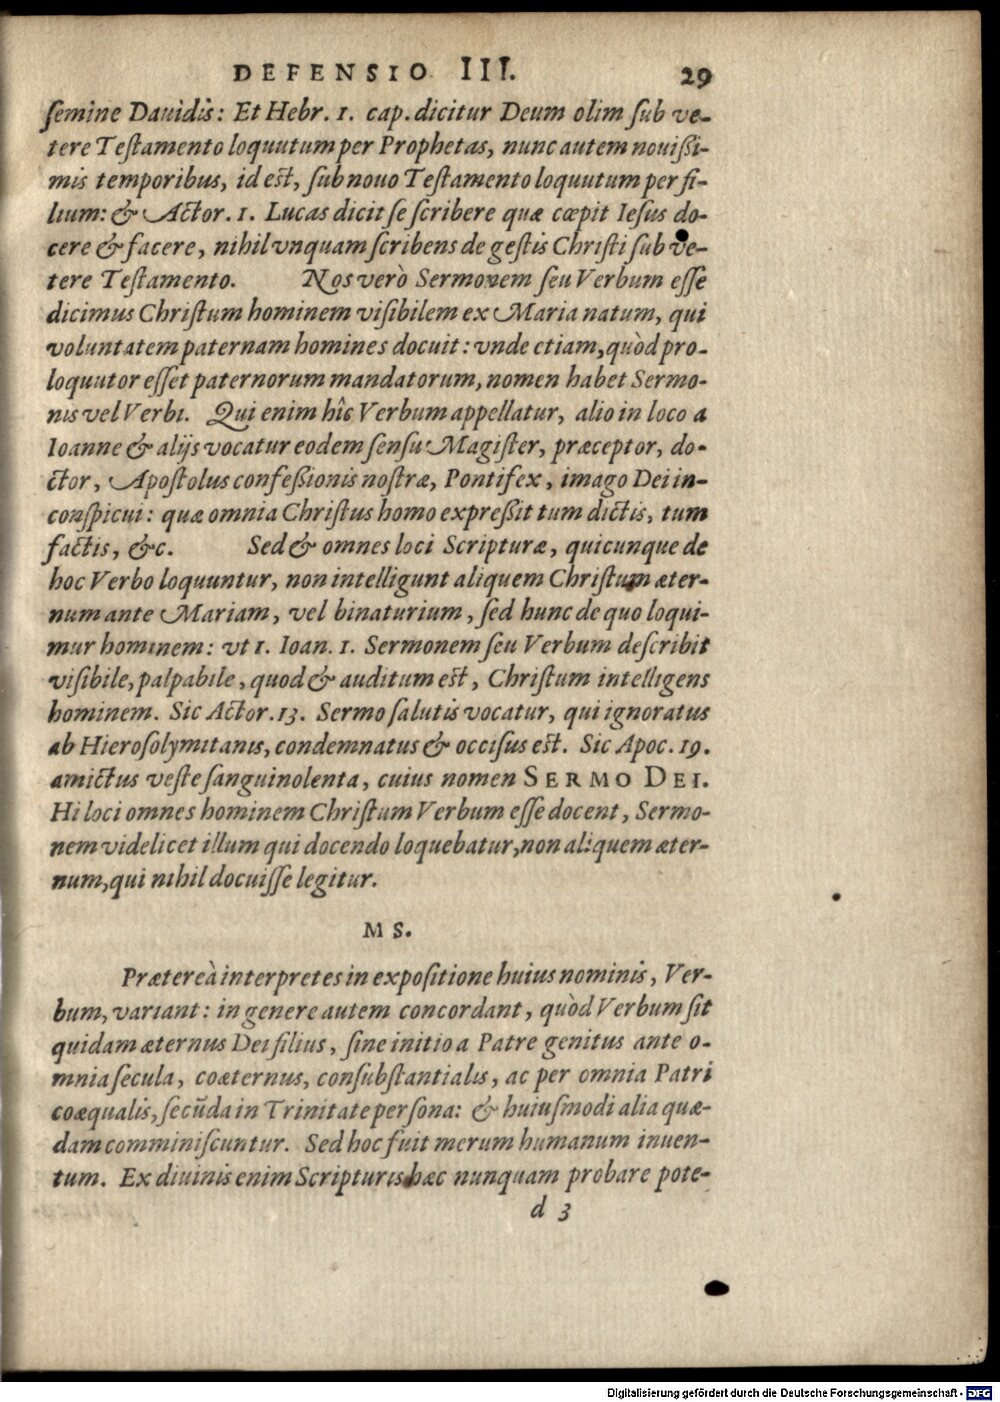 DEFENSIO III. 29
ſemine Dauidis: Et Hebr. 1. cap. dicitur Deum olim ſub ve-
tere Teſtamento loquutum per Prophetas, nunc autem nouißi-
mis temporibus, id eſt, ſub nouo Teſtamento loquutum per fi-
lium: & Actor. 1. Lucas dicit ſe ſcribere quæ cœpit Ieſus do-
cere & facere, nihil vnquam ſcribens de geſtis Chriſti ſub ve-
tere Teſtamento. Nos verò Sermonem ſeu Verbum eſſe
dicimus Chriſtum hominem viſibilem ex Maria natum, qui
voluntatem paternam homines docuit: vnde etiam, quòd pro-
loquutor eſſet paternorum mandatorum, nomen habet Sermo-
nis vel Verbi. Qui enim hîc Verbum appellatur, alio in loco a
Ioanne & alijs vocatur eodem ſenſu Magiſter, præceptor, do-
ctor, Apoſtolus confeßionis noſtræ, Pontifex, imago Dei in-
conſpicui: quæ omnia Chriſtus homo expreßit tum dictis, tum
factis, &c. Sed & omnes loci Scripturæ, quicunque de
hoc Verbo loquuntur, non intelligunt aliquem Chriſtum æter-
num ante Mariam, vel binaturium, ſed hunc de quo loqui-
mur hominem: vt 1. Ioan. 1. Sermonem ſeu Verbum deſcribit
viſibile, palpabile, quod & auditum eſt, Chriſtum intelligens
hominem. Sic Actor. 13. Sermo ſalutis vocatur, qui ignoratus
ab Hieroſolymitanis, condemnatus & occiſus eſt. Sic Apoc. 19.
amictus veſte ſanguinolenta, cuius nomen SERMO DEI.
Hi loci omnes hominem Chriſtum Verbum eſſe docent, Sermo-
nem videlicet illum qui docendo loquebatur, non aliquem æter-
num, qui nihil docuiſſe legitur.
MS.
Prætereà interpretes in expoſitione huius nominis, Ver-
bum, variant: in genere autem concordant, quòd Verbum ſit
quidam æternus Dei filius, ſine initio a Patre genitus ante o-
mnia ſecula, coæternus, conſubſtantialis, ac per omnia Patri
coæqualis, ſecũda in Trinitate perſona: & huiuſmodi alia quæ-
dam comminiſcuntur. Sed hoc fuit merum humanum inuen-
tum. Ex diuinis enim Scripturis hæc nunquam probare pote-
d 3
Digitalisierung gefördert durch die Deutsche Forschungsgemeinschaft - DFG